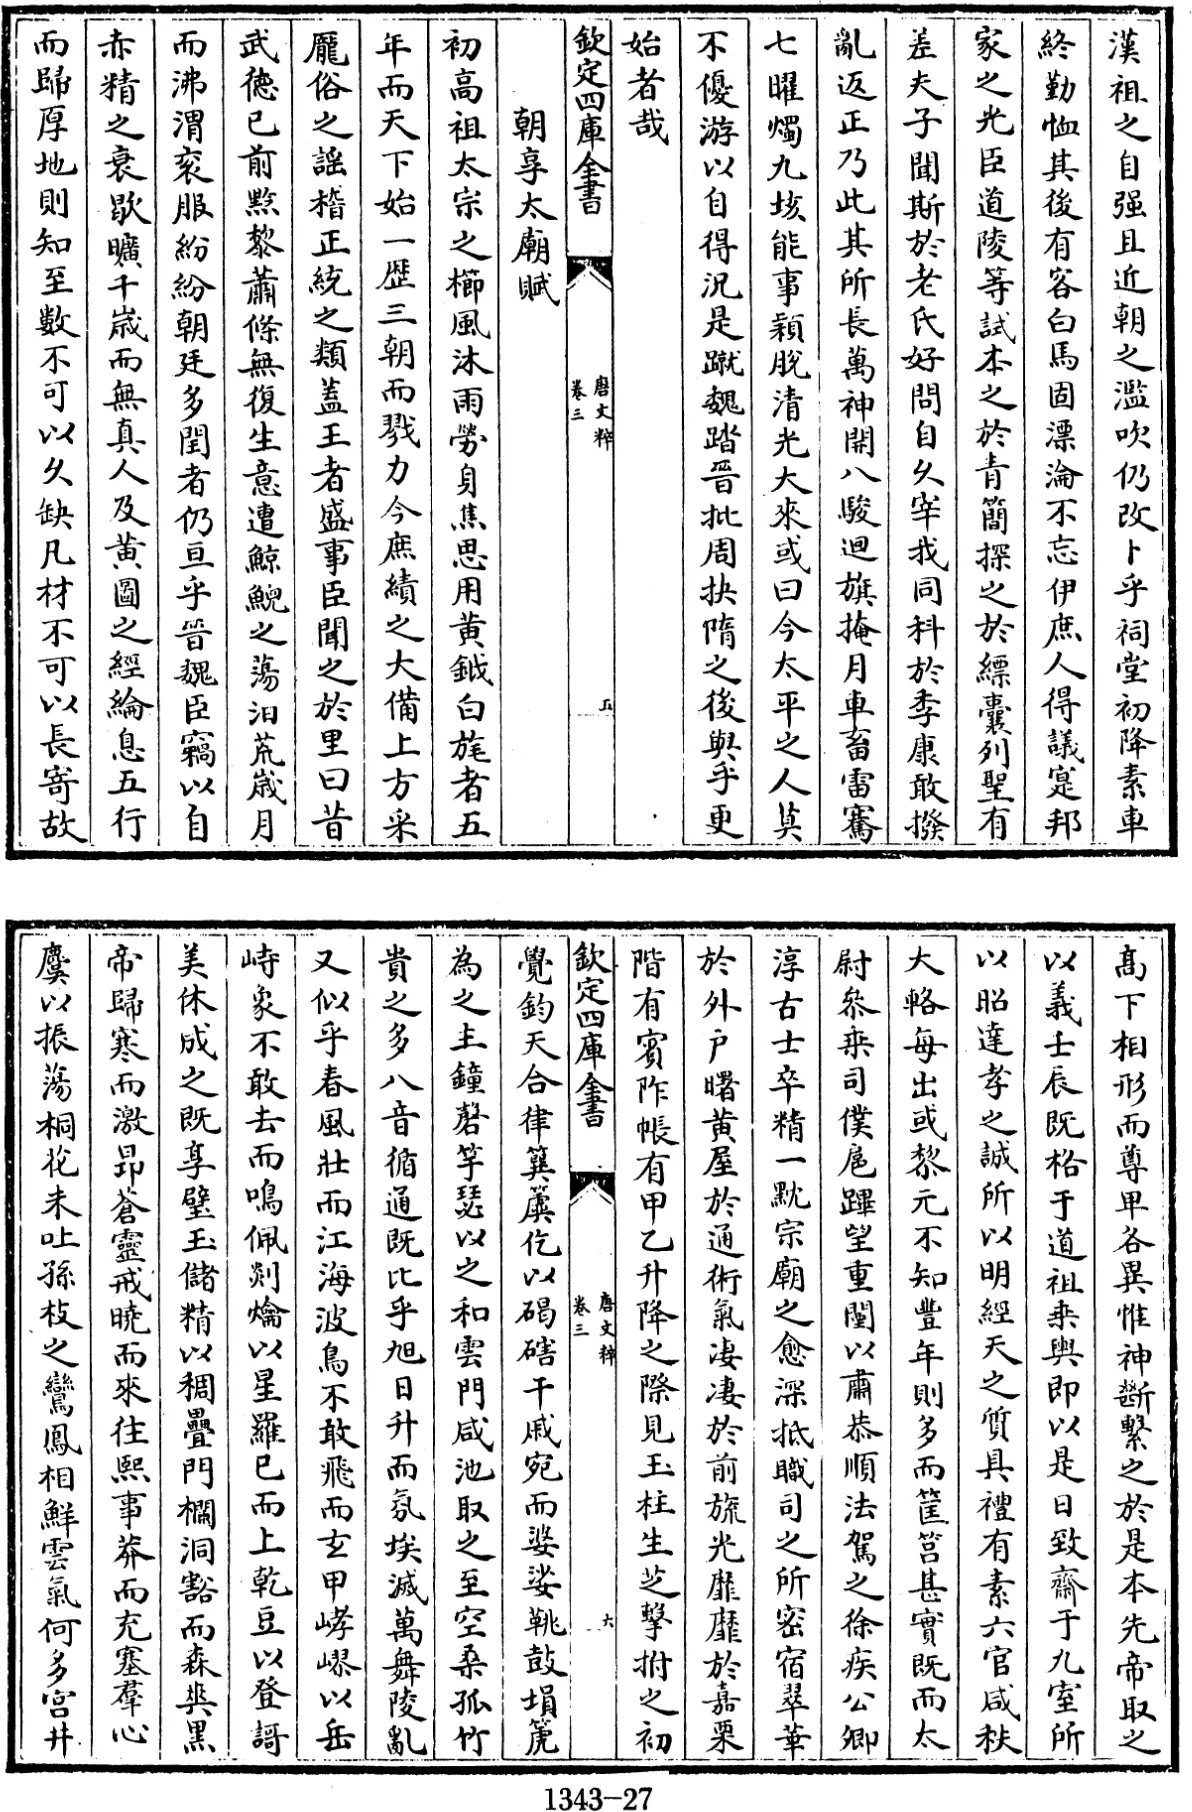 漢祖之自强且近朝之濫吹仍改卜乎祠堂初降素車
終勤恤其後有容白馬固漂淪不忘伊庶人得議寔邦
家之光臣道陵等試本之於青簡探之於縹囊列聖有
差夫子聞斯於老氏好問自久宰我同科於季康敢撥
亂返正乃此其所長萬神開八駿迴旗掩月車畜雷騫
七曜燭九垓能事穎脫清光大來或曰今太平之人莫
不優游以自得況是蹴魏踏晉批周抉隋之後與乎更
始者哉
欽定四庫全書
唐文粹
卷三
五
朝享太廟賦
初高祖太宗之櫛風沐雨勞身焦思用黄鉞白旄者五
年而天下始一歷三朝而戮力今庶績之大備上方采
厖俗之謡稽正統之類蓋王者盛事臣聞之於里曰昔
武德已前黔黎蕭條無復生意遭鯨鯢之蕩汨荒歲月
而沸渭衮服紛紛朝廷多閏者仍亘乎晉魏臣竊以自
赤精之衰歇曠千歲而無真人及黄圖之經綸息五行
而歸厚地則知至數不可以久缺凡材不可以長寄故
高下相形而尊卑各異惟神斷繫之於是本先帝取之
以義壬辰既格于道祖乘輿即以是日致齋于九室所
以昭達孝之誠所以明經天之質具禮有素六官咸秩
大輅每出或黎元不知豐年則多而筐筥甚實既而太
尉叅乘司僕扈蹕望重闉以肅恭順法駕之徐疾公卿
淳古士卒精一黙宗廟之愈深抵職司之所宻宿翠華
於外戸曙黄屋於通術氣凄凄於前旒光靡靡於嘉栗
階有賓阼帳有甲乙升降之際見玉柱生芝擊拊之初
欽定四庫全書
唐文粹
卷三
六
覺鈞天合律簨簴仡以碣磍干戚宛而婆娑鞉鼓塤箎
為之主鐘磬竽瑟以之和雲門咸池取之至空桑孤竹
貴之多八音循通既比乎旭日升而氛埃滅萬舞陵亂
又似乎春風壯而江海波鳥不敢飛而玄甲崢嵺以岳
峙象不敢去而鳴佩剡爚以星羅已而上乾豆以登謌
美休成之既享璧玉儲精以稠疊門欄洞豁而森爽黒
帝歸寒而激昂蒼靈戒曉而來往熙事莽而充塞羣心
㒁以振蕩桐花未吐孫枝之鸞鳳相鮮雲氣何多宫井
1343-27